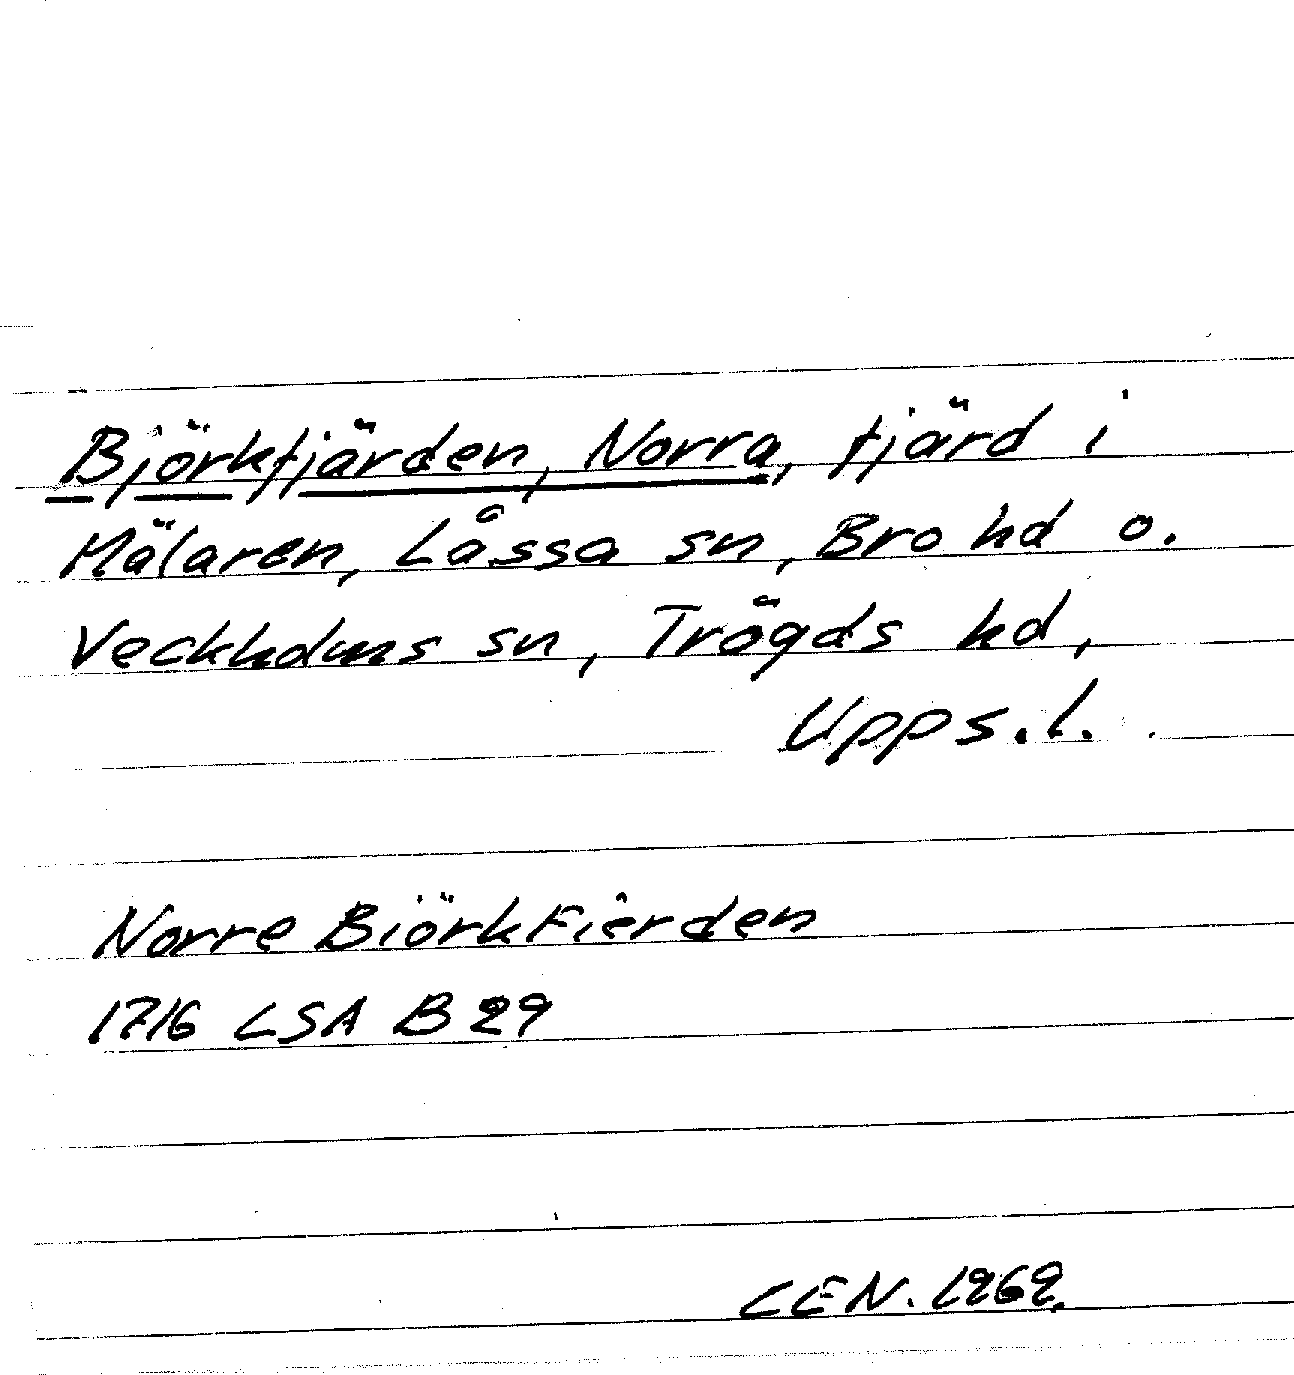 Björkfjärden, Norra, fjärd i
Mälaren, Låssa sn, Bro hd o.
Veckholms sn, Trögds hd,
Upps.l.
Norre Biörkfierden
1716 LSA B29
CEN. 1969.